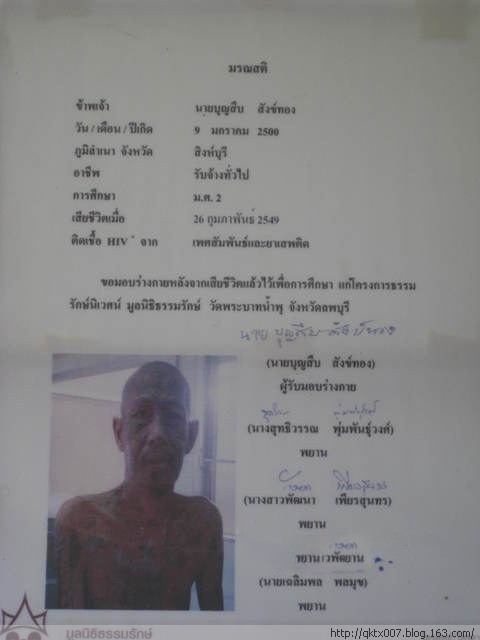 มรณสติ
ข้าพเจ้า นายบุญสืบ สังข์ทอง
วัน / เดือน / ปีเกิด 9 มกราคม 2500
ภูมิลำเนา จังหวัด สิงห์บุรี
อาชีพ รับจ้างทั่วไป
การศึกษา ม.ศ. 2
เสียชีวิตเมื่อ 26 กุมภาพันธ์ 2549
ติดเชื้อ HIV จาก เพศสัมพันธ์และยาเสพติด
ขอมอบร่างกายหลังจากเสียชีวิตแล้วไว้เพื่อการศึกษา แก่โครงการธรรม
รักษ์นิเวศน์ มูลนิธิธรรมรักษ์ วัดพระบาทน้ำพุ จังหวัดลพบุรี
นาย บุญสืบ สังข์ทอง
(นายบุญสืบ สังข์ทอง)
ผู้รับมอบร่างกาย
(นางสุทธิวรรณ พุ่มพันธุ์วงศ์)
พยาน
(นางสาวพัฒนา เพียรสุนทร)
พยาน
(นายเฉลิมพล พลมุข)
พยาน
มูลนิธิธรรมรักษ์
http://qktx007.blog.163.com/